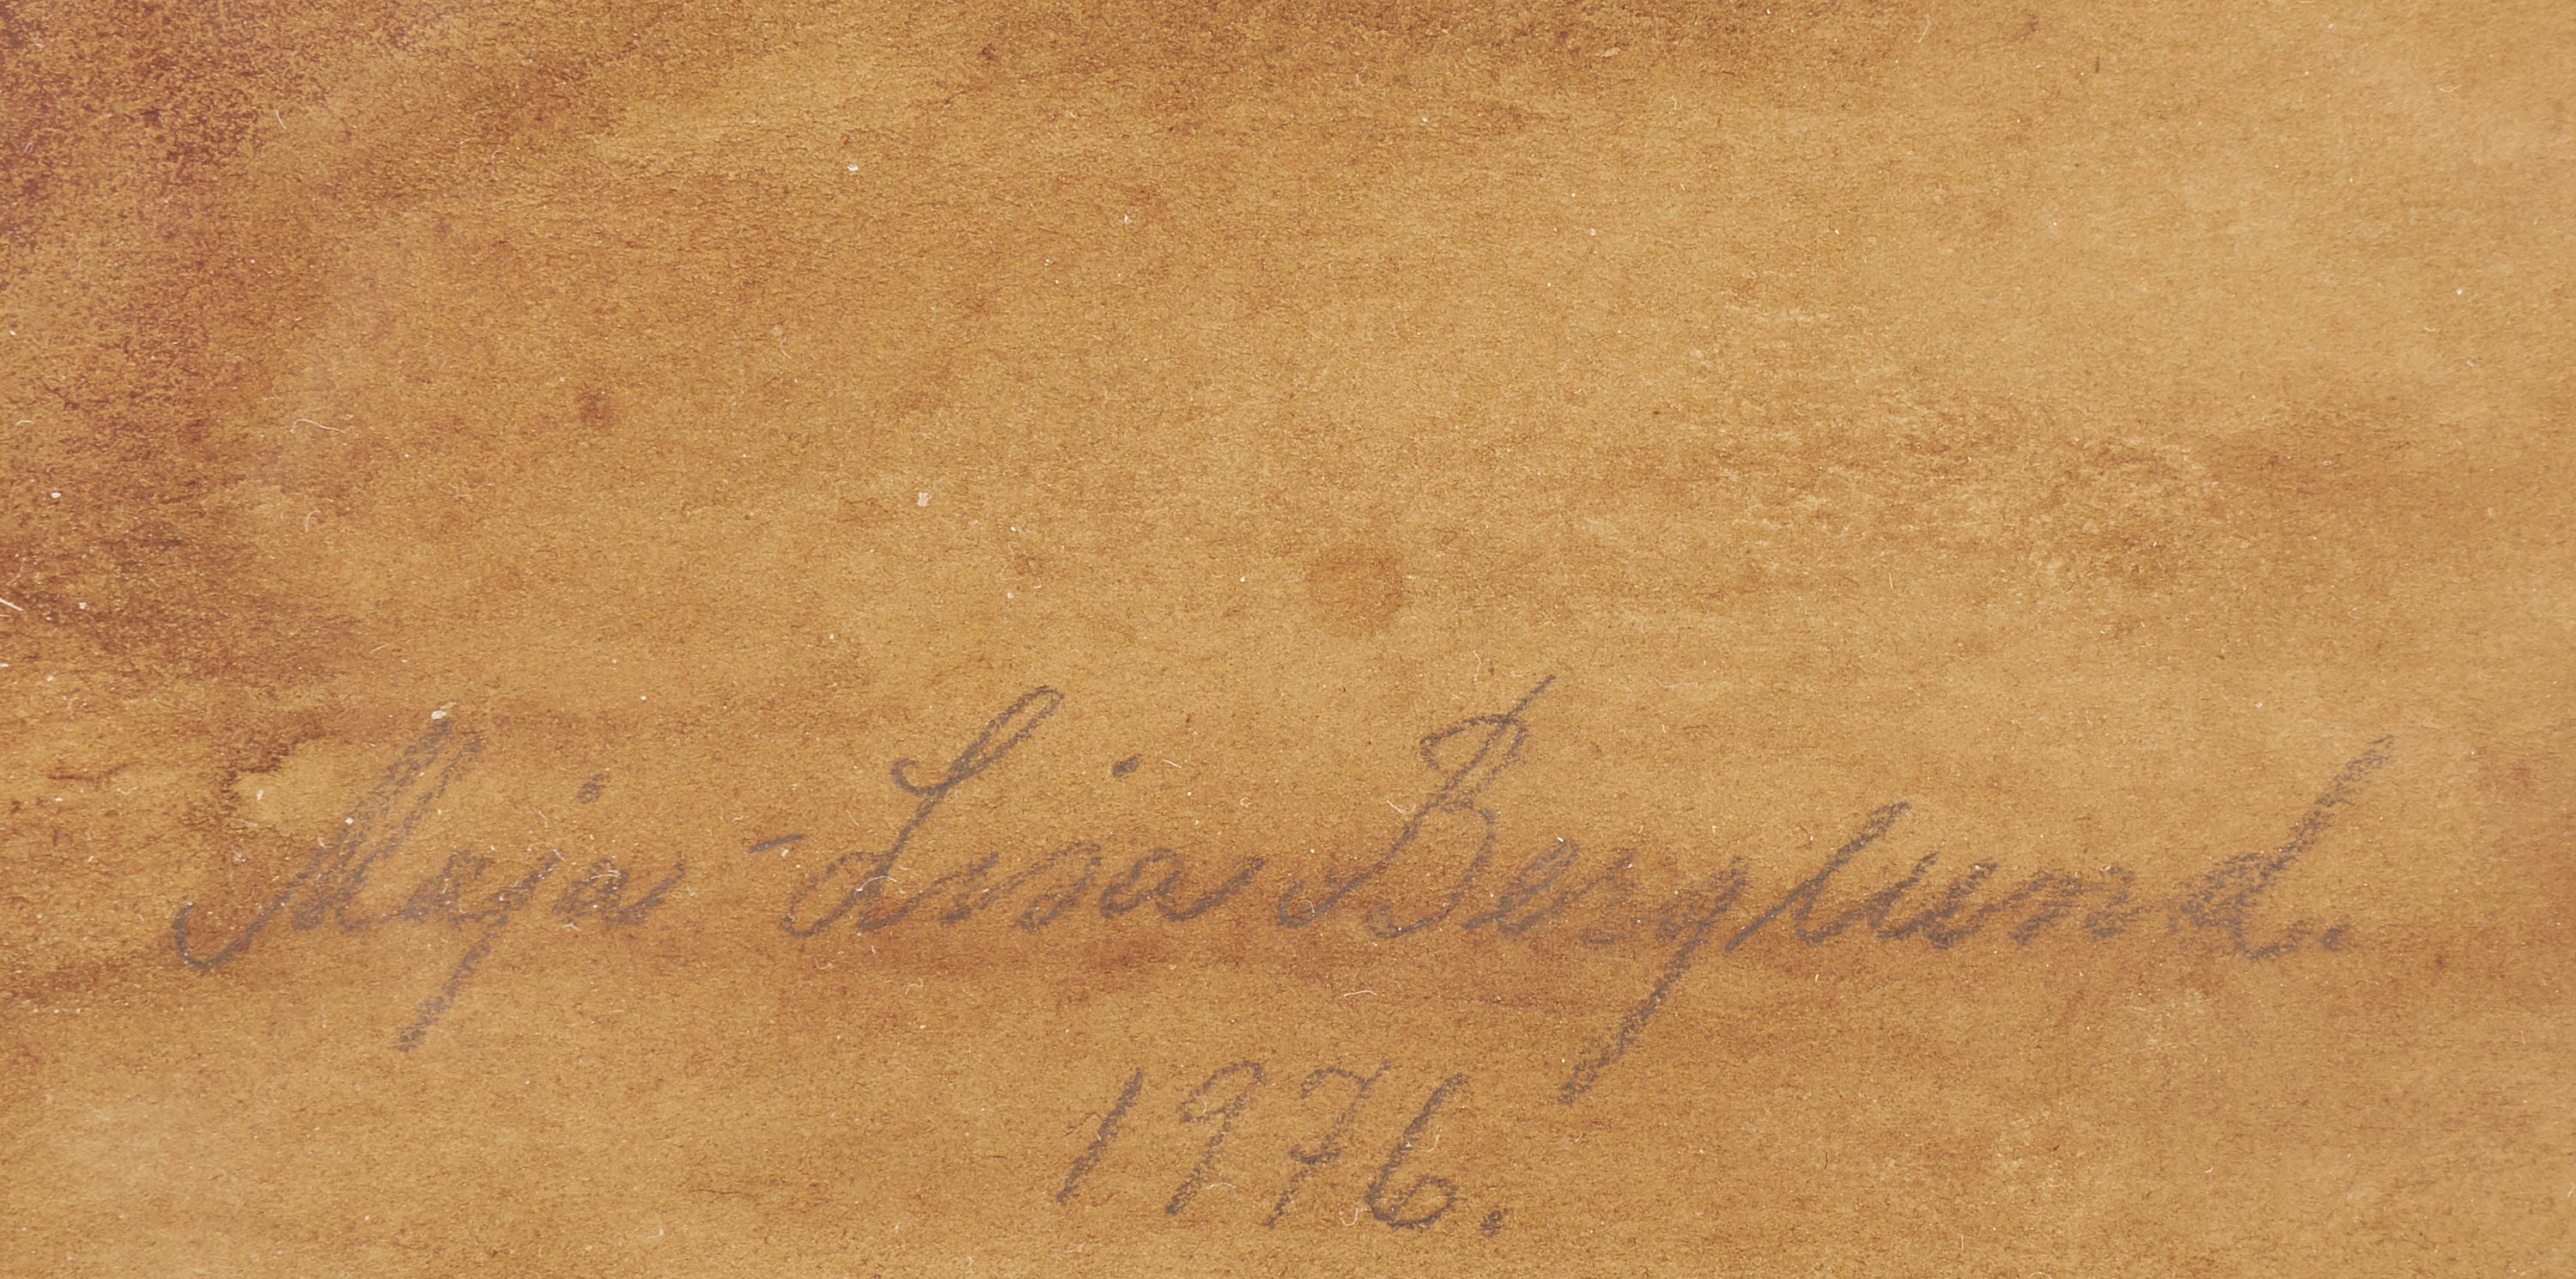 Maja-Lisa Berglund.
1976.